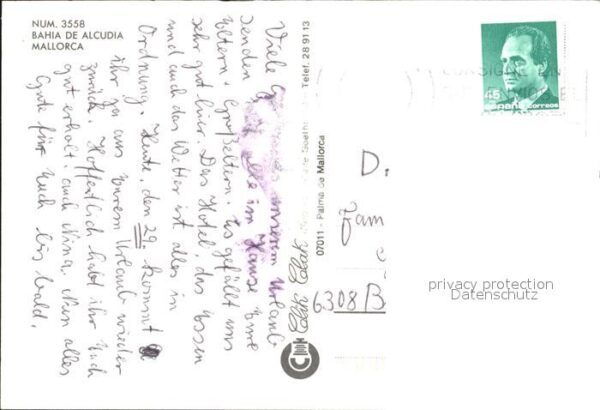 NUM. 3558
BAHIA DE ALCUDIA
MALLORCA
Viele Grüße aus unserem Urlaub
senden alle im Hause Eure
Eltern + Großeltern. Es gefällt uns
sehr gut hier. Das Hotel, das Essen
und auch das Wetter ist alles in
Ordnung. Heute, den 29. kommt
Ihr ja aus Eurem Urlaub wieder
zurück. Hoffentlich habt ihr Euch
gut erholt, auch Nina. Nun alles
Gute für Euch bis bald.
Click Clak
07011 - Palma de Mallorca
Telef. 28 91 13
45
ESPAÑA correos
D.
Fam
6308 B
privacy protection
Datenschutz